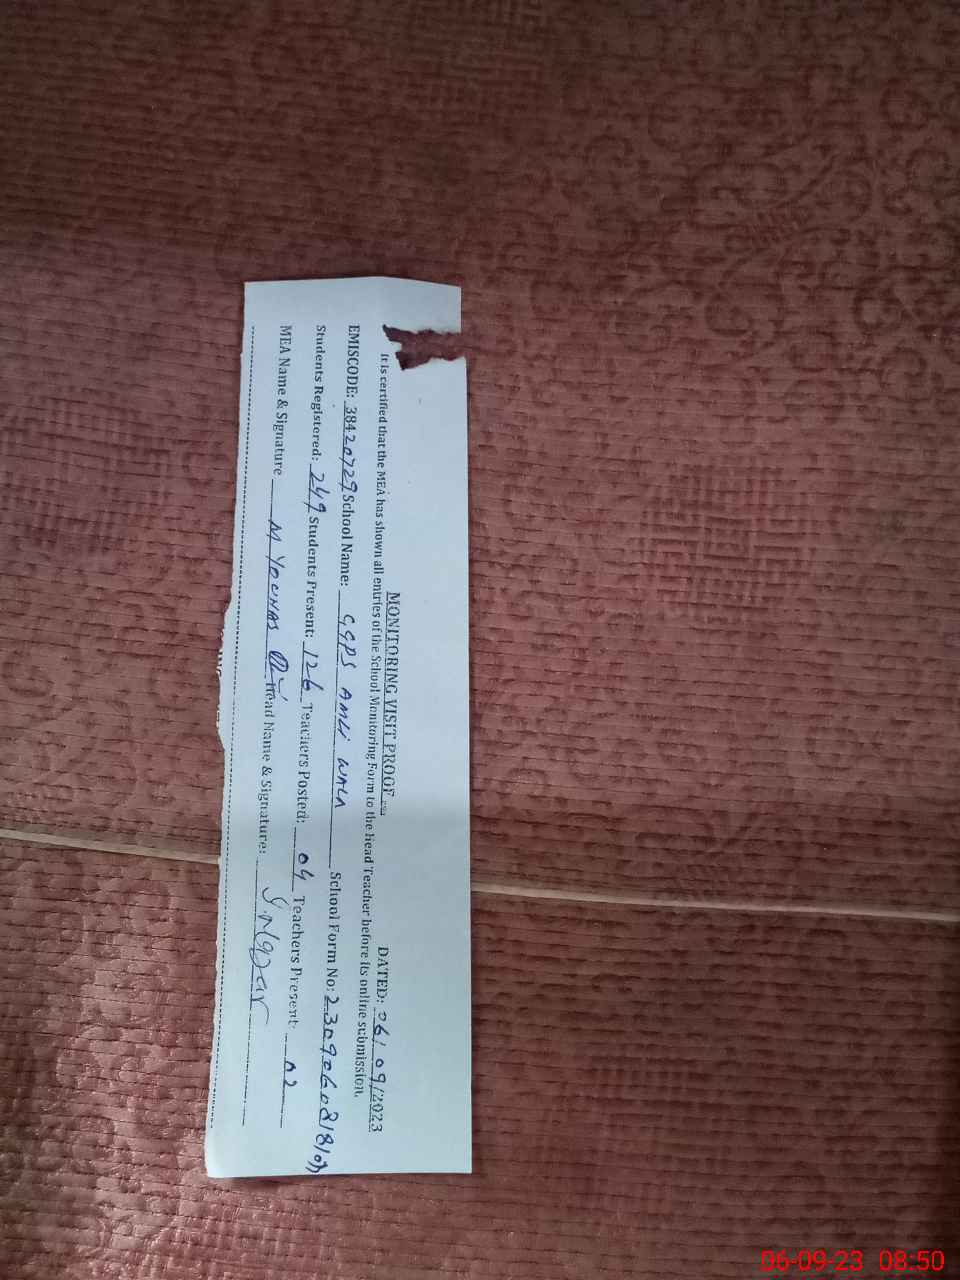 MONITORING VISIT PROOF
DATED: 06/09/2023
It is certified that the MEA has shown all entries of the School Monitoring Form to the Head Teacher before its online submission.
EMISCODE: 38420729 School Name: GGPS AMLI WALA School Form No:
Students Registered: 249 Students Present: 126 Teachers Posted: 04 Teachers Present: 02
MEA Name & Signature M YOUNAS Head Name & Signature:
06-09-23 08:50